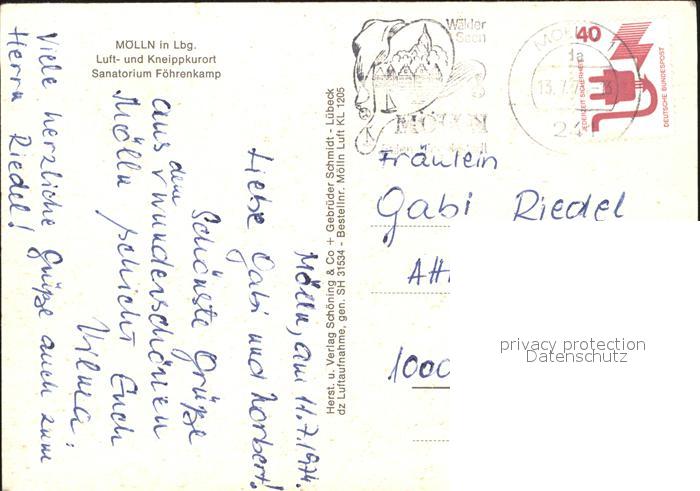 MÖLLN in Lbg.
Luft- und Kneippkurort
Sanatorium Föhrenkamp
Mölln, am 11.7.1974.
Liebe Gabi und Norbert!
Schönste Grüße
aus dem wunderschönen
Mölln schickt Euch
Vilma.
Viele herzliche Grüße auch zum
Herrn Riedel!
Herst. u. Verlag Schöning & Co + Gebrüder Schmidt - Lübeck
dz Luftaufnahme, gen. SH 31534 - Bestellnr. Mölln Luft KL 1205
Wälder
Seen
MÖLLN
MÖLLN 1
da
13.7.
24
40
JEDERZEIT SICHERHEIT
DEUTSCHE BUNDESPOST
Fräulein
Gabi Riedel
1000
privacy protection
Datenschutz